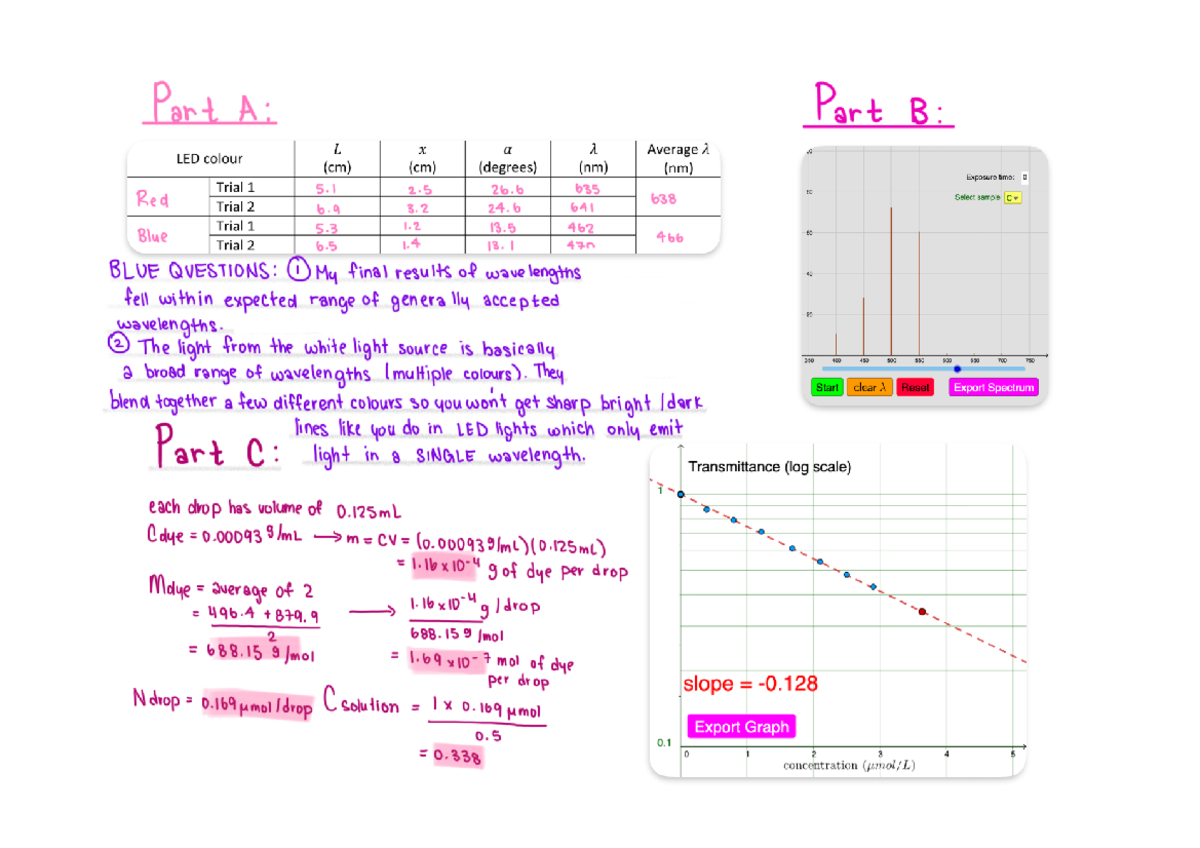 Part A:
Part B:
LED colour L (cm) x (cm) α (degrees) λ (nm) Average λ (nm)
Red Trial 1 5.1 2.5 26.6 635 638
Trial 2 6.9 3.2 24.6 641
Blue Trial 1 5.3 1.2 13.5 462 466
Trial 2 6.5 1.4 13.1 470
BLUE QUESTIONS: ① My final results of wavelengths
fell within expected range of generally accepted
wavelengths.
② The light from the white light source is basically
a broad range of wavelengths (multiple colours). They
blend together a few different colours so you won't get sharp bright /dark
lines like you do in LED lights which only emit
light in a SINGLE wavelength.
Exposure time: 
Select sample C
80
60
40
20
350 400 450 500 550 600 650 700 750
Start clear λ Reset Export Spectrum
Part C:
each drop has volume of 0.125mL
Cdye = 0.00093 g/mL → m = CV = (0.00093g/mL)(0.125mL)
= 1.16 x 10⁻⁴ g of dye per drop
Mdye = average of 2
= 496.4 + 879.9
2
= 688.15 g/mol
→ 1.16 x 10⁻⁴ g/drop
688.15 g/mol
= 1.69 x 10⁻⁷ mol of dye
per drop
Ndrop = 0.169 μmol/drop
Csolution = 1 x 0.169 μmol
0.5
= 0.338
Transmittance (log scale)
1
slope = -0.128
Export Graph
0.1
0 1 2 3 4 5
concentration (μmol/L)